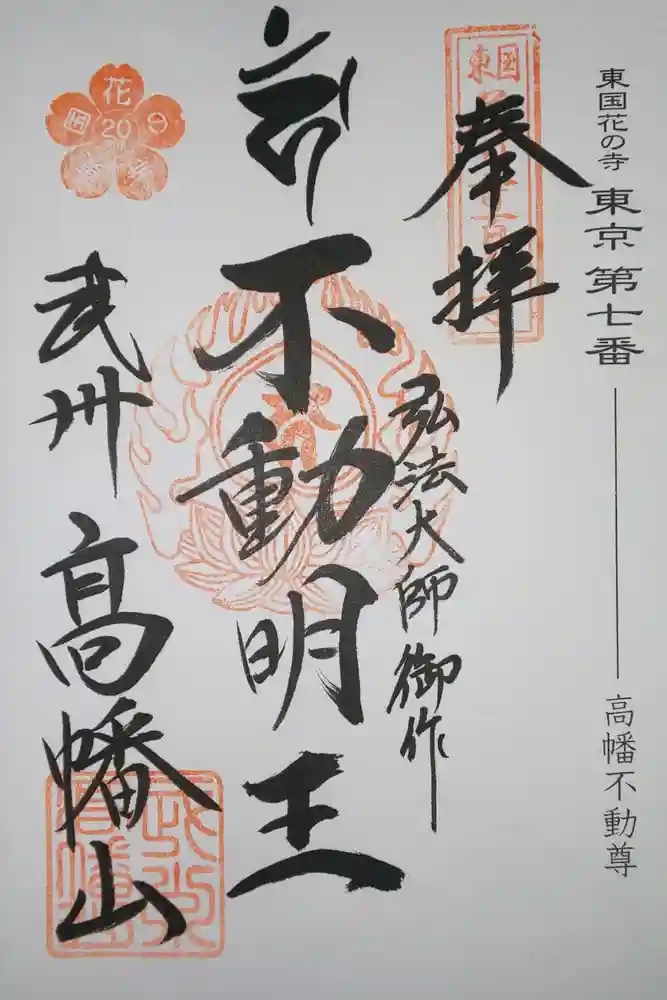 東国花の寺 東京 第七番
高幡不動尊
奉拝
弘法大師御作
不動明王
武州
高幡山
東国
花
20